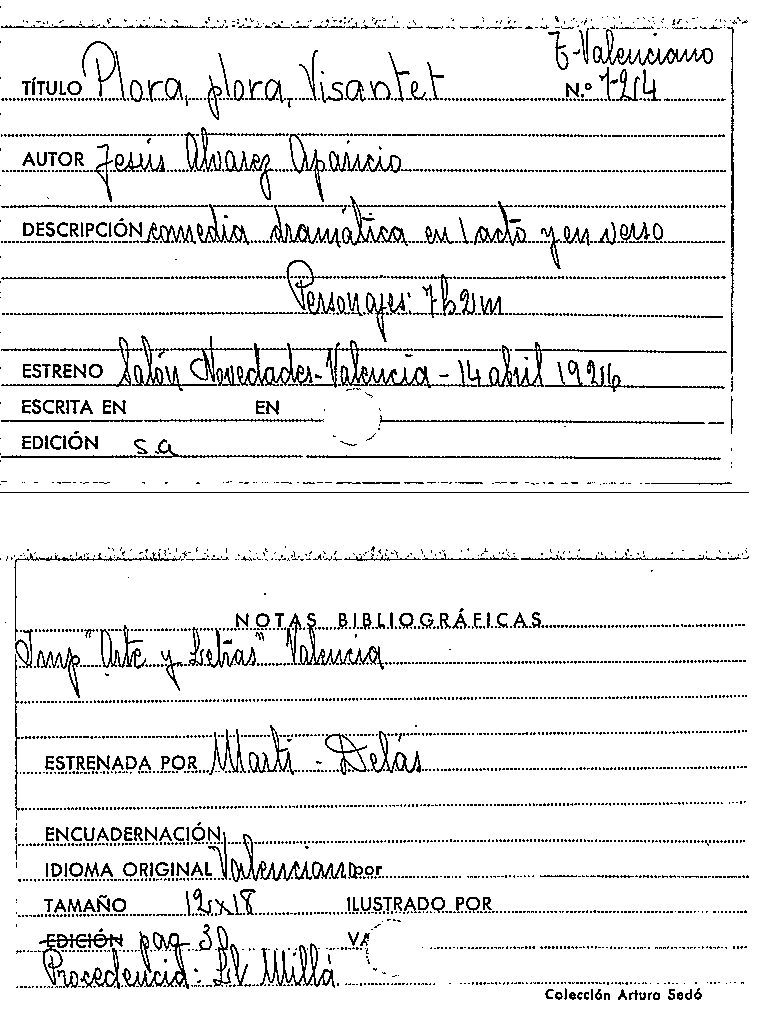 T-Valenciano
TÍTULO Plora, plora, Visantet N.º 7-214
AUTOR Jesús Alvarez Aparicio
DESCRIPCIÓN comedia dramática en 1 acto y en verso
Personajes: 7h 2m
ESTRENO Salón Novedades - Valencia - 14 abril 1926
ESCRITA EN EN
EDICIÓN s.a
NOTAS BIBLIOGRÁFICAS
Imp "Arte y Letras" Valencia
ESTRENADA POR Martí - Delás
ENCUADERNACIÓN
IDIOMA ORIGINAL Valenciano por
TAMAÑO 12x18 ILUSTRADO POR
EDICIÓN pag 30 VA
Procedencia: Ll Millá
Colección Arturo Sedó